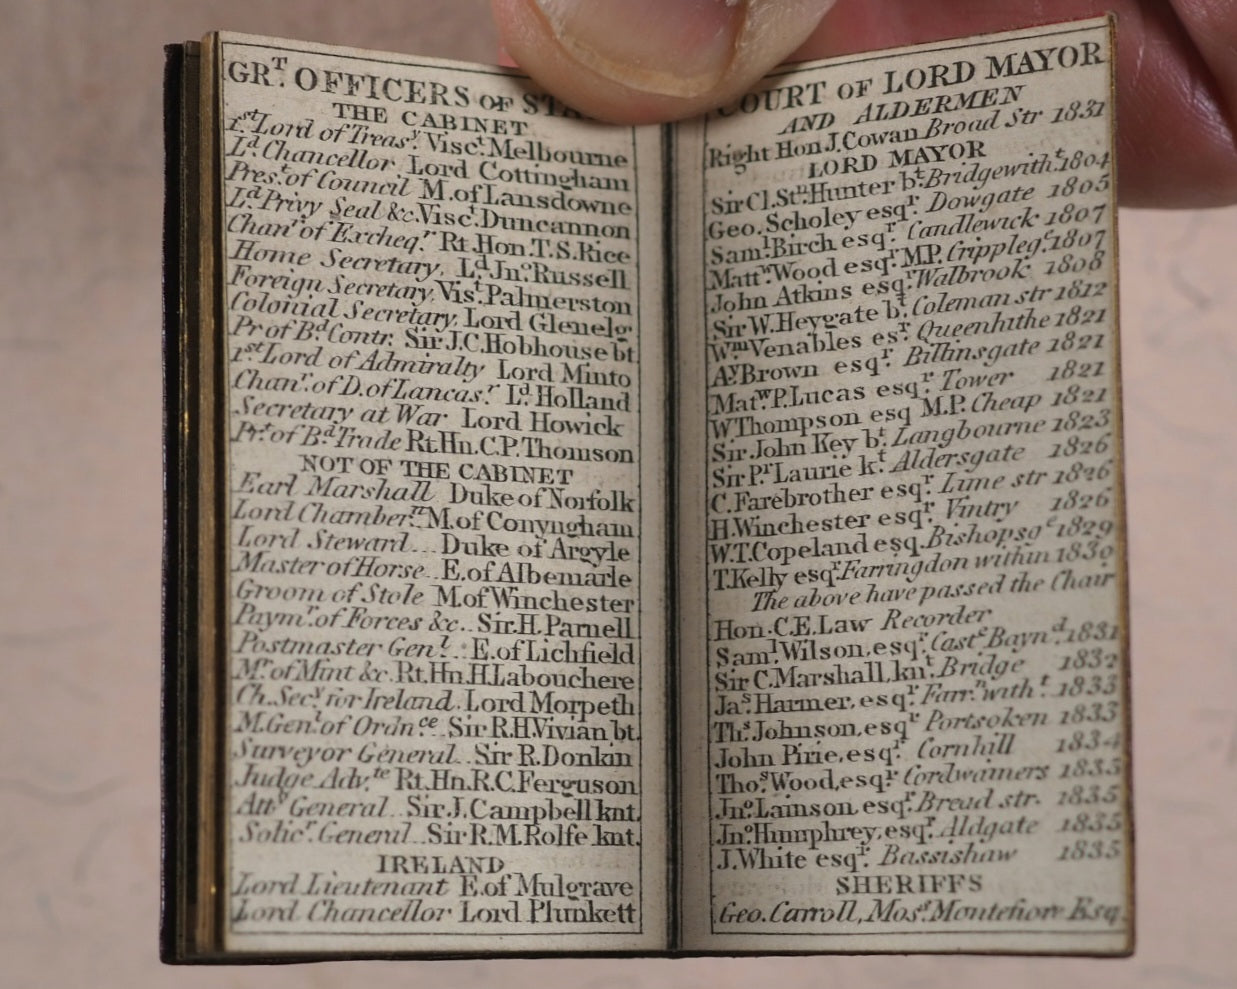 GRT. OFFICERS OF
THE CABINET
1st Lord of Treasy. Visct. Melbourne
Ld. Chancellor. Lord Cottingham
Prest. of Council M. of Lansdowne
Ld. Privy Seal &c. Visct. Duncannon
Chanr. of Excheqr. Rt. Hon. T.S. Rice
Home Secretary. Ld. Jno. Russell
Foreign Secretary. Vist. Palmerston
Colonial Secretary. Lord Glenelg.
Pr of Bd. Contr. Sir J.C. Hobhouse bt.
1st. Lord of Admiralty Lord Minto
Chanr. of D. of Lancasr. Ld. Holland
Secretary at War Lord Howick
Prt. of Bd. Trade Rt. Hn. C.P. Thomson
NOT OF THE CABINET
Earl Marshall Duke of Norfolk
Lord Chambern. M. of Conyngham
Lord Steward... Duke of Argyle
Master of Horse.. E. of Albemarle
Groom of Stole M. of Winchester
Paymr. of Forces &c.. Sir. H. Parnell
Postmaster Genl... E. of Lichfield
Mr. of Mint &c. Rt. Hn. H. Labouchere
Ch. Secy. for Ireland. Lord Morpeth
M. Genl. of Ordnce.. Sir R.H. Vivian bt.
Surveyor General.. Sir R. Donkin
Judge Advte. Rt. Hn. R.C. Ferguson
Atty General.. Sir J. Campbell knt.
Solicr. General.. Sir R.M. Rolfe knt.
IRELAND
Lord Lieutenant E. of Mulgrave
Lord Chancellor Lord Plunkett
COURT OF LORD MAYOR
AND ALDERMEN
Right Hon J. Cowan Broad Str 1831
LORD MAYOR
Sir Cl. Stn. Hunter bt. Bridgewitht. 1804
Geo. Scholey esqr. Dowgate 1805
Saml. Birch esqr. Candlewick 1807
Mattw. Wood esqr. M.P. Cripplege. 1807
John Atkins esqr. Walbrook 1808
Sir W. Heygate bt. Coleman str 1812
Wm. Venables esr. Queenhithe 1821
Ay. Brown esqr. Billinsgate 1821
Matw. P. Lucas esqr. Tower 1821
W Thompson esq M.P. Cheap 1821
Sir John Key bt. Langbourne 1823
Sir Pr. Laurie kt. Aldersgate 1826
C. Farebrother esqr. Lime str 1826
H. Winchester esqr. Vintry 1826
W.T. Copeland esq. Bishopsge 1829
T. Kelly esqr. Farringdon within 1830
The above have passed the Chair
Hon. C.E. Law Recorder
Saml. Wilson, esqr. Caste Baynd. 1831
Sir C. Marshall, knt. Bridge 1832
Jas. Harmer, esqr. Farrn. witht. 1833
Ths. Johnson, esqr. Portsoken 1833
John Pirie, esqr. Cornhill 1834
Thos. Wood, esqr. Cordwainers 1835
Jno. Lainson, esqr. Bread str. 1835
Jno. Humphrey, esqr. Aldgate 1835
J. White esqr. Bassishaw 1835
SHERIFFS
Geo. Carroll, Moss. Montefiore Esq.